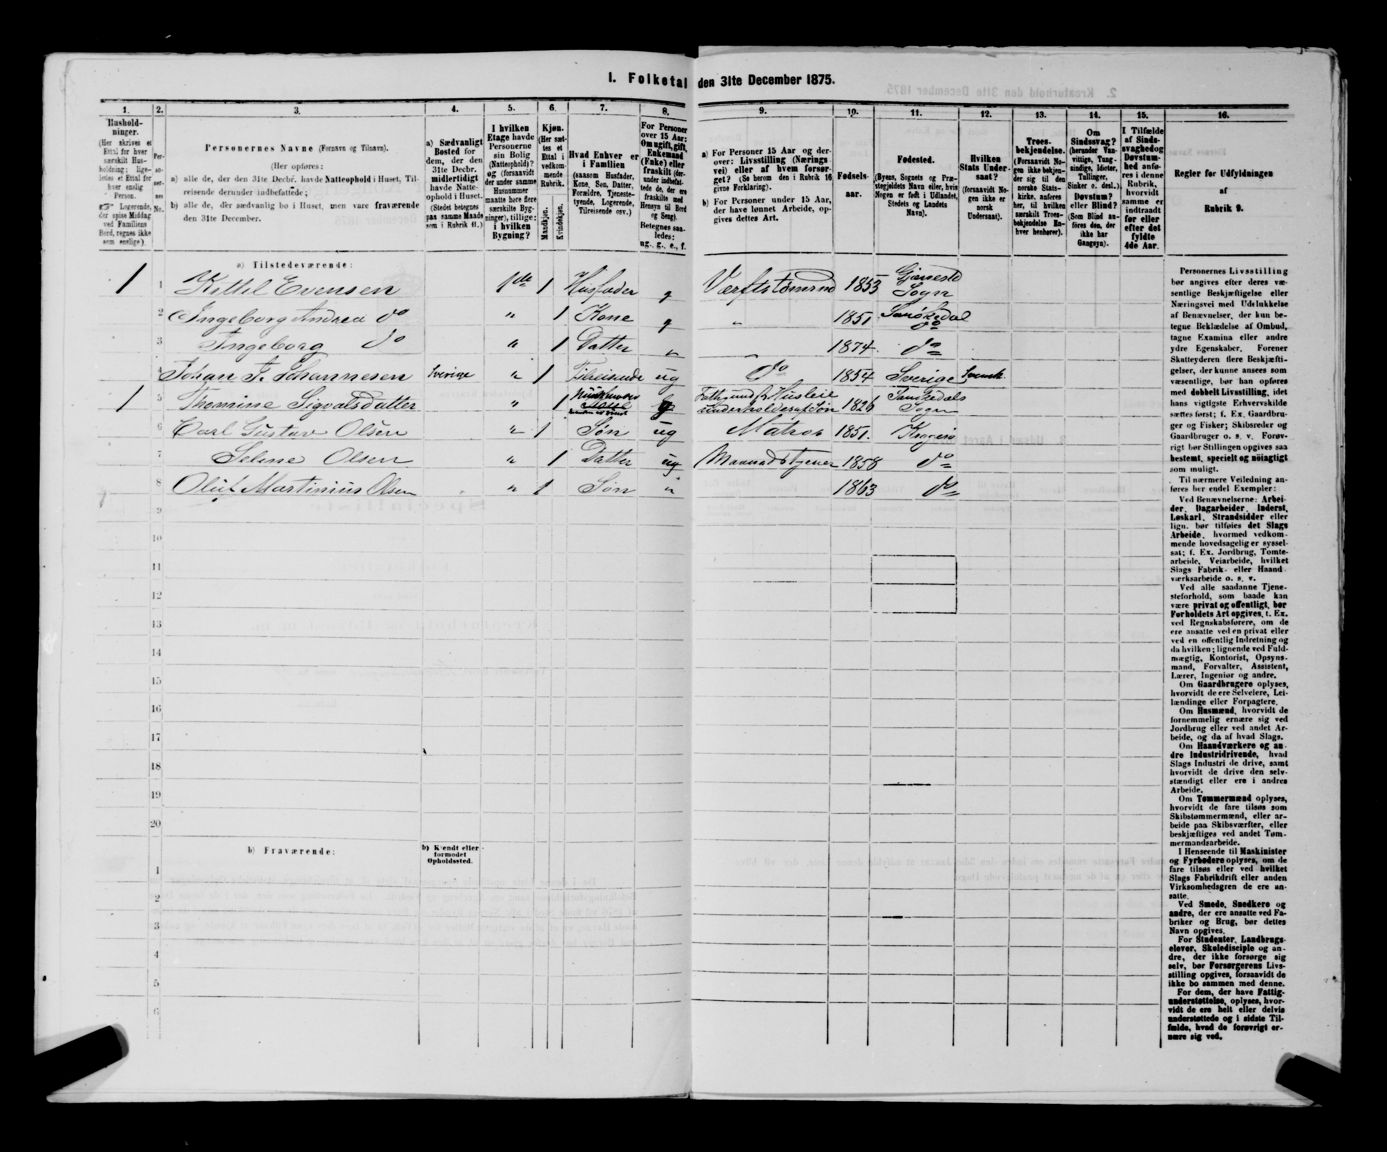 1. Folketal den 31te December 1875.
1. 2. 3. 4. 5. 6. 7. 8. 9. 10. 11. 12. 13. 14. 15. 16.
Hushold-
ninger.
(Her skrives et
Ettal for hver
særskilt Hus-
holdning; lige-
ledes et Ettal for
hver enslig
Person.
☞ Logerende,
der spise Middag
ved Familiens
Bord, regnes ikke
som enslige).
Per-
so-
ner-
nes
No.
Personernes Navne (Fornavn og Tilnavn).
(Her opføres:
a) alle de, der den 31te Decbr. havde Natteophold i Huset, Til-
reisende derunder indbefattede;
b) alle de, der sædvanlig bo i Huset, men vare fraværende
den 31te December.
a) Sædvanligt
Bosted for
dem, der den
31te Decbr.
midlertidigt
havde Natte-
ophold i Huset.
(Stedet betegnes
paa samme Maade
som i Rubrik 11.)
I hvilken
Etage havde
Personerne
sin Bolig
(Natteophold)?
og (forsaavidt
der under samme
Husnummer
maatte høre flere
særskilte Byg-
ninger), tillige:
i hvilken
Bygning?
Kjøn.
(Her sæt-
tes et
Ettal i
vedkom-
mende
Rubrik.
Mandkjøn.
Kvindekjøn.
Hvad Enhver er
i Familien
(saasom Husfader,
Kone, Søn, Datter,
Forældre, Tjeneste-
tyende, Logerende,
Tilreisende osv.)
For Personer
over 15 Aar:
Om ugift, gift,
Enkemand
(Enke) eller
fraskilt (der-
under indbefat-
tede de, der ere
fraskilte med
Hensyn til Bord
og Seng).
Betegnes saa-
ledes:
ug., g., e., f.
a) For Personer 15 Aar og der-
over: Livsstilling (Nærings
vei) eller af hvem forsør-
get? (Se herom den i Rubrik 16
givne Forklaring).
b) For Personer under 15 Aar,
der have lønnet Arbeide, op-
gives dettes Art.
Fødsels-
aar.
Fødested.
(Byens, Sognets og Præ-
stegjeldets Navn eller, hvis
Nogen er født i Udlandet,
Stedets og Landets
Navn).
Hvilken
Stats Under-
saat?
(forsaavidt No-
gen ikke er
norsk
Undersaat).
Troes-
bekjendelse.
(Forsaavidt No-
gen ikke bekjen-
der sig til den
norske Stats-
kirke, anføres
her, til hvilken
særskilt Troes-
bekjendelse En-
hver henhører).
Om
Sindssvag?
(herunder Van-
vittige, Tung-
sindige, Idioter,
Tullinger,
Sinker o. desl.),
Døvstum?
eller Blind?
(Som Blind an-
føres den, der
ikke har
Gangsyn).
I Tilfælde
af Sinds-
svaghed og
Døvstum-
hed anfø-
res i denne
Rubrik,
hvorvidt
samme er
indtraadt
før eller
efter det
fyldte
4de Aar.
Regler for Udfyldningen
af
Rubrik 9.
a) Tilstedeværende:
1 1 Kittel Evensen 1ste 1 Husfader g Værftstømmd 1853 Sogn
2 Ingeborg Andrea do " 1 Kone g " 1851 do
3 Ingeborg do " 1 Datter " " 1874 do
4 Johan F. Johannesen Sverige " 1 Tilreisende ug do 1854 Sverige Svensk
1 5 Thomine Sigvalsdatter " 1 1826 Sogn
6 Carl Gustav Olsen " 1 Søn ug Matros 1851.
7 Seline Olsen " 1 Datter ug 1858 do
8 Oluf Martinius Olsen " 1 Søn " 1863 do
9
10
11
12
13
14
15
16
17
18
19
20
b) Fraværende:
b) Kjendt eller
formodet
Opholdssted.
1
2
3
4
5
6
Personernes Livsstilling
bør angives efter deres væ-
sentlige Beskjæftigelse eller
Næringsvei med Udelukkelse
af Benævnelser, der kun be-
tegne Beklædelse af Ombud,
tagne Examina eller andre
ydre Egenskaber. Forener
Skatteyderen flere Beskjæfti-
gelser, der kunne ansees som
væsentlige, bør han opføres
med dobbelt Livsstilling, idet
hans vigtigste Erhvervskilde
sættes først; f. Ex. Gaardbru-
ger og Fisker; Skibsreder og
Gaardbruger o. s. v. Forøv-
rigt bør Stillingen opgives saa
bestemt, specielt og nøiagtigt
som muligt.
Til nærmere Veiledning an-
føres her endel Exempler:
Ved Benævnelserne: Arbei-
der, Dagarbeider, Inderst,
Løskarl, Strandsidder eller
lign. bør tilføies det Slags
Arbeide, hvormed vedkom-
mende hovedsagelig er syssel-
sat; f. Ex. Jordbrug, Tomte-
arbeide, Veiarbeide, hvilket
Slags Fabrik- eller Haand-
værksarbeide o. s. v.
Ved alle saadanne Tjene-
steforhold, som baade kan
være privat og offentligt, bør
Forholdets Art opgives, f. Ex.
ved Regnskabsførere, om de
ere ansatte ved en privat eller
ved en offentlig Indretning og
da hvilken; lignende ved Fuld-
mægtig, Kontorist, Opsyns-
mand, Forvalter, Assistent,
Lærer, Ingeniør og andre.
Om Gaardbrugere oplyses,
hvorvidt de ere Selveiere, Lei-
lændinge eller Forpagtere.
Om Husmænd, hvorvidt de
fornemmelig ernære sig ved
Jordbrug eller ved andet Ar-
beide, og da af hvad Slags.
Om Haandværkere og an-
dre Industridrivende, hvad
Slags Industri de drive, samt
hvorvidt de drive den selv-
stændigt eller ere i andres
Arbeide.
Om Tømmermænd oplyses,
hvorvidt de fare tilsøs som
Skibstømmermænd, eller ar-
beide paa Skibsværfter, eller
beskjæftiges ved andet Tøm-
mermandsarbeide.
I Henseende til Maskinister
og Fyrbødere oplyses, om de
fare tilsøs eller ved hvilket
Slags Fabrikdrift eller anden
Virksomhedsgren de ere an-
satte.
Ved Smede, Snedkere og
andre, der ere ansatte ved Fa-
briker og Brug, bør dettes
Navn opgives.
For Studenter, Landbrugs-
elever, Skoledisciple og an-
dre, der ikke forsørge sig
selv, bør Forsørgerens Livs-
stilling opgives, forsaavidt de
ikke bo sammen med denne.
For dem, der have Fattig-
understøttelse, oplyses, hvor-
vidt de ere helt eller delvis
understøttede og i sidste Til-
fælde, hvad de forøvrigt er-
nære sig ved.